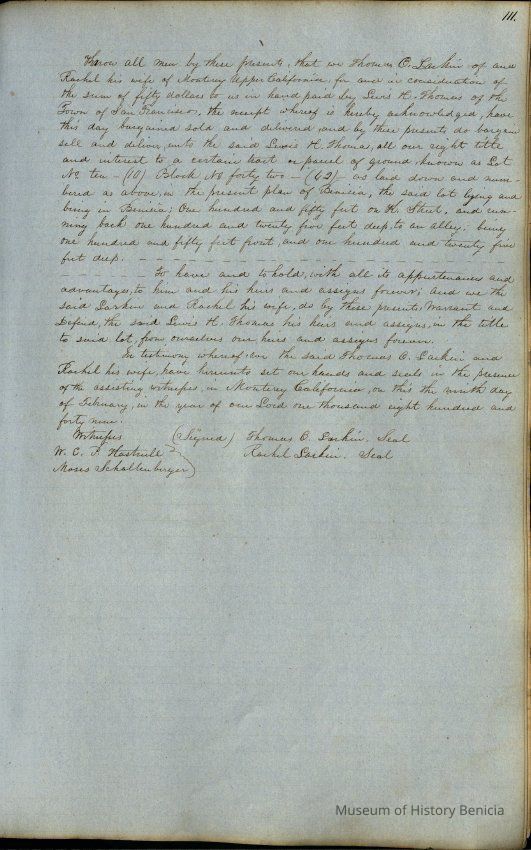 111.
Know all men by these presents, that we Thomas O. Larkin of and
Rachel his wife of Monterey Upper California, for and in consideration of
the sum of fifty dollars to us in hand paid by Lewis H. Thomas of the
Town of San Francisco, the receipt whereof is hereby acknowledged, have
this day bargained sold and delivered, and by these presents do bargain
sell and deliver, unto the said Lewis H. Thomas, all our right title
and interest to a certain tract or parcel of ground, known as Lot
No ten - (10) Block No forty two - (42) - as laid down and num-
bered as above, in the present plan of Benicia, the said lot lying and
being in Benicia; One hundred and fifty feet on K. Street, and run-
ning back one hundred and twenty five feet deep, to an alley; being
one hundred and fifty feet front, and one hundred and twenty five
feet deep.
To have and to hold, with all its appurtenances and
advantages, to him and his heirs and assigns forever; And we the
said Larkin and Rachel his wife, do by these presents, Warrant and
Defend, the said Lewis H. Thomas his heirs and assigns, in the title
to said lot, from ourselves our heirs and assigns forever.
In testimony whereof, we the said Thomas O. Larkin and
Rachel his wife, have hereunto set our hands and seals in the presence
of the assisting witnesses, in Monterey California, on this the ninth day
of February, in the year of our Lord one thousand eight hundred and
forty nine.
Witnesses (Signed) Thomas O. Larkin. Seal
W. E. P. Hartnell Rachel Larkin. Seal
Moses Schallenberger
Museum of History Benicia